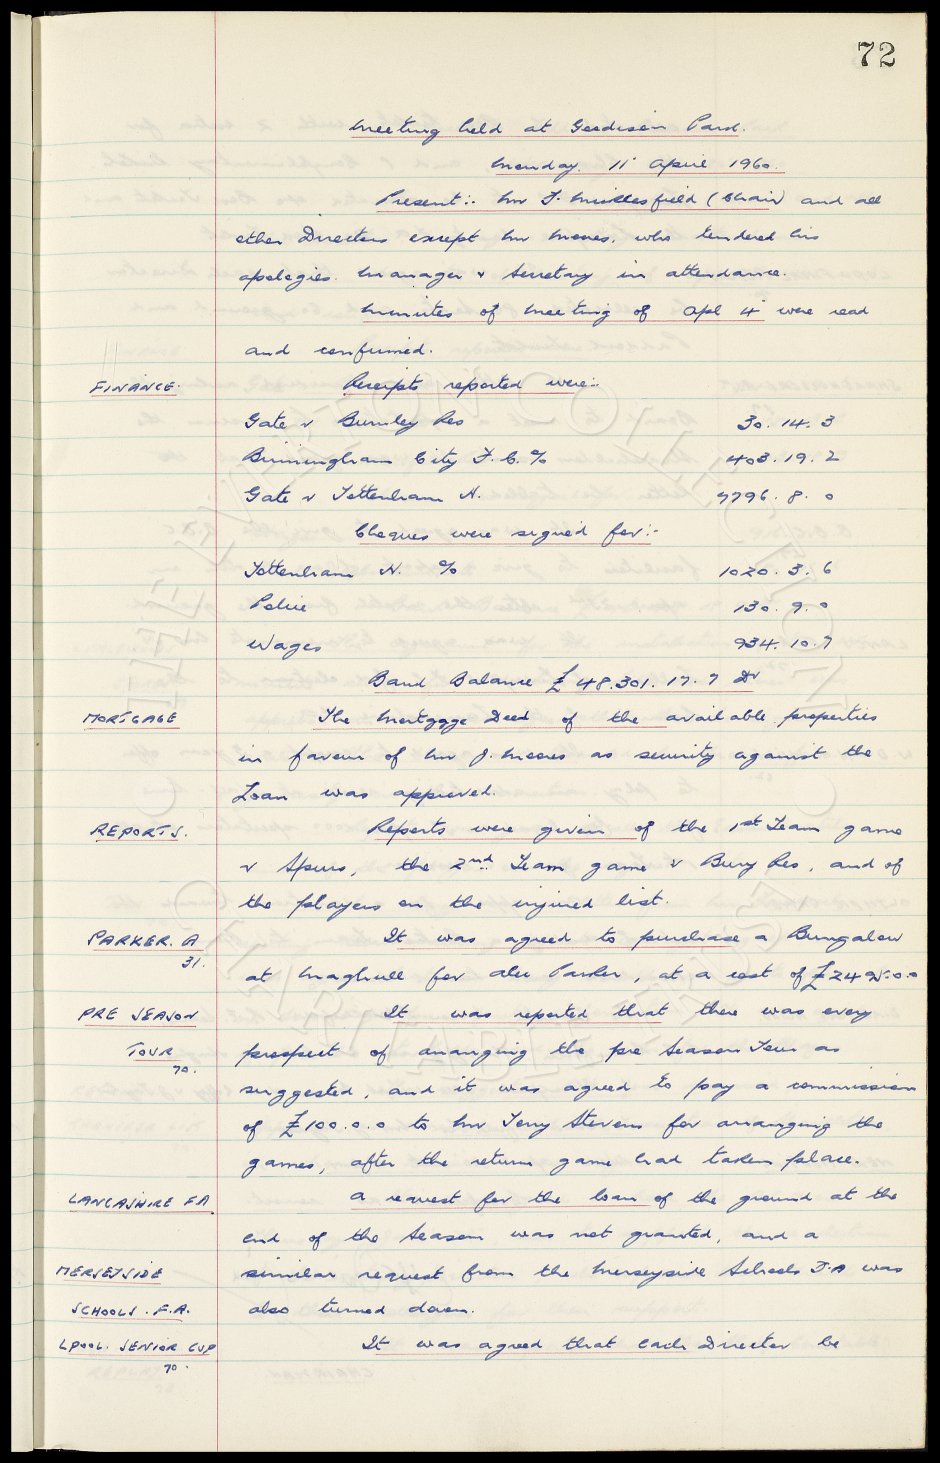 72
Meeting held at Goodison Park.
Monday. 11 April 1960.
Present:- Mr F. Micklesfield (Chair) and all
other Directors except Mr Moores, who tendered his
apologies. Manager & Secretary in attendance.
Minutes of Meeting of Apl 4 were read
and confirmed.
FINANCE. Receipts reported were:-
Gate v Burnley Res 30. 14. 3
Birmingham City F. C. % 403. 19. 2
Gate v Tottenham H. 7796. 8. 0
Cheques were signed for:-
Tottenham H. % 1020. 3. 6
Police 130. 9. 0
Wages 934. 10. 7
Bank Balance £48.301. 17. 7 Dr
MORTGAGE The Mortgage Deed of the available properties
in favour of Mr J. Moores as security against the
Loan was approved.
REPORTS. Reports were given of the 1st Team game
v Spurs, the 2nd Team game v Bury Res, and of
the players on the injured list.
PARKER. A It was agreed to purchase a Bungalow
31. at Maghull for Alex Parker, at a cost of
PRE SEASON It was reported that there was every
TOUR prospect of arranging the pre Season Tour as
70. suggested, and it was agreed to pay a commission
of £100.0.0 to Mr Terry Stevens for arranging the
games, after the return game had taken place.
LANCASHIRE FA A request for the loan of the ground at the
end of the Season was not granted, and a
MERSEYSIDE similar request from the Merseyside Schools F.A was
SCHOOLS. F.A. also turned down.
LPOOL. SENIOR CUP It was agreed that each Director be
70.